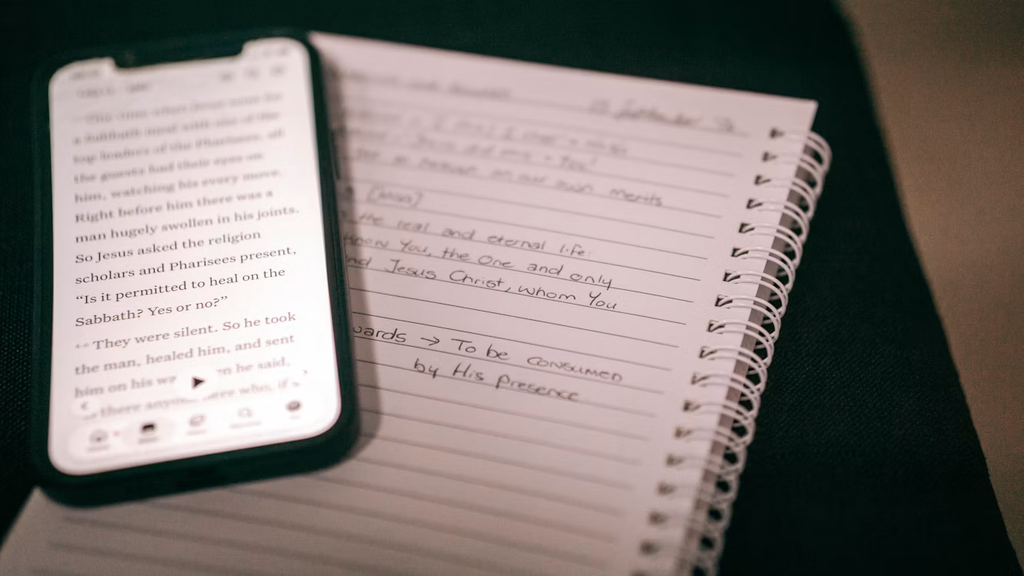 One time when Jesus went for
a Sabbath meal with one of the
top leaders of the Pharisees, all
the guests had their eyes on
him, watching his every move.
Right before him there was a
man hugely swollen in his joints.
So Jesus asked the religion
scholars and Pharisees present,
“Is it permitted to heal on the
Sabbath? Yes or no?”
They were silent. So he took
the man, healed him, and sent
him on his
he said,
there
who, if
September
on our own merits
the real and eternal life:
You, the One and only
Jesus Christ, whom You
wards → To be consumed
by His presence